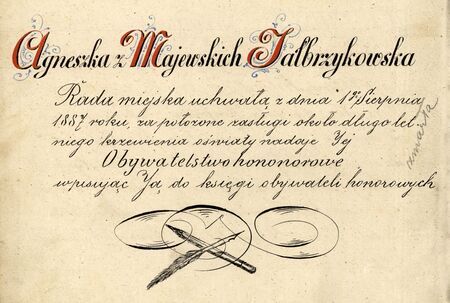 Agneszka z Majewskich Jałbrzykowska
Rada miejska uchwałą z dnia 1go Sierpnia
1887 roku, za położone zasługi około długo let-
niego krzewienia oświaty nadaje Jej
Obywatelstwo hononorowe
wpisując Ją do księgi obywateli honorowych
zmarła